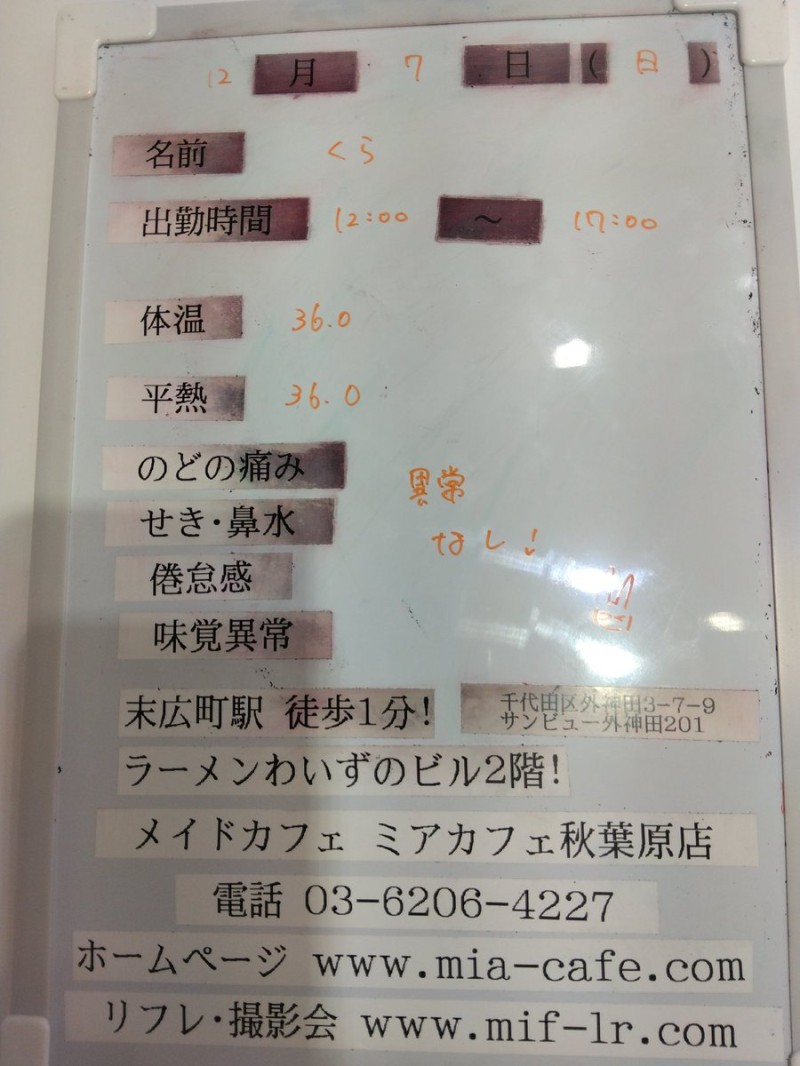 12 月 7 日 ( 日 )
名前 くら
出勤時間 12:00 ～ 17:00
体温 36.0
平熱 36.0
のどの痛み
せき・鼻水
倦怠感
味覚異常
異常
なし!
末広町駅 徒歩1分!
千代田区外神田3-7-9
サンビュー外神田201
ラーメンわいずのビル2階!
メイドカフェ ミアカフェ秋葉原店
電話 03-6206-4227
ホームページ www.mia-cafe.com
リフレ・撮影会 www.mif-lr.com